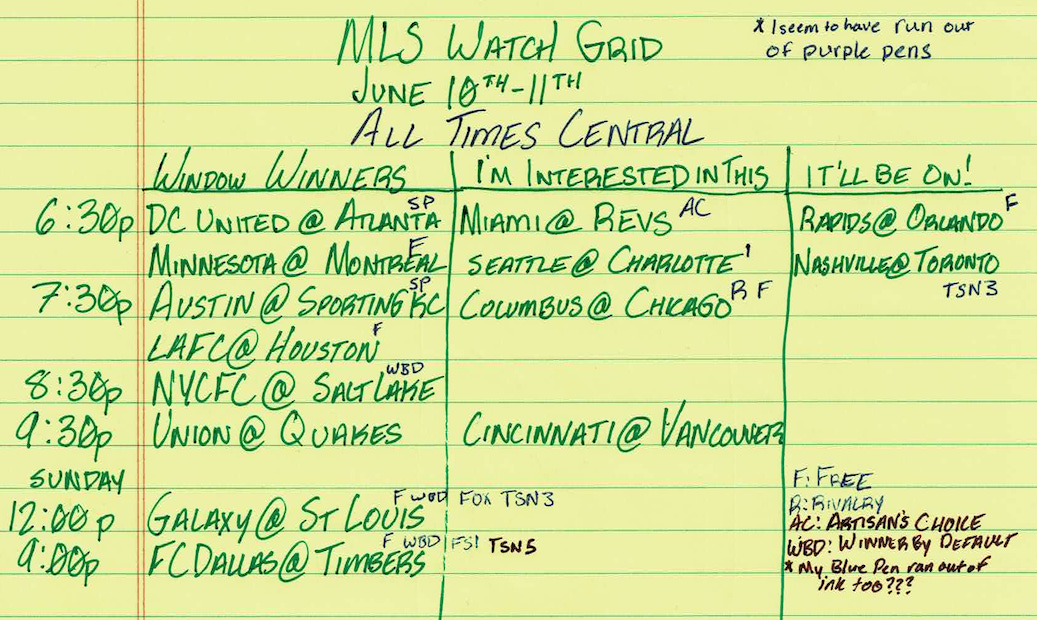 MLS WATCH GRID
* I seem to have run out
of purple pens
JUNE 10TH-11TH
ALL TIMES CENTRAL
WINDOW WINNERS I'M INTERESTED IN THIS IT'LL BE ON!
6:30p DC UNITED @ ATLANTA SP MIAMI @ REVS AC RAPIDS @ ORLANDO F
MINNESOTA @ MONTREAL F SEATTLE @ CHARLOTTE ' NASHVILLE @ TORONTO
TSN3
7:30p AUSTIN @ SPORTING KC SP COLUMBUS @ CHICAGO R F
LAFC @ HOUSTON F
8:30p NYCFC @ SALT LAKE WBD
9:30p UNION @ QUAKES CINCINNATI @ VANCOUVER
SUNDAY
12:00p GALAXY @ ST LOUIS F WBD FOX TSN3
9:00p FC DALLAS @ TIMBERS F WBD FS1 TSN5
F: FREE
R: RIVALRY
AC: ARTISAN'S CHOICE
WBD: WINNER BY DEFAULT
* My Blue Pen ran out of
ink too???